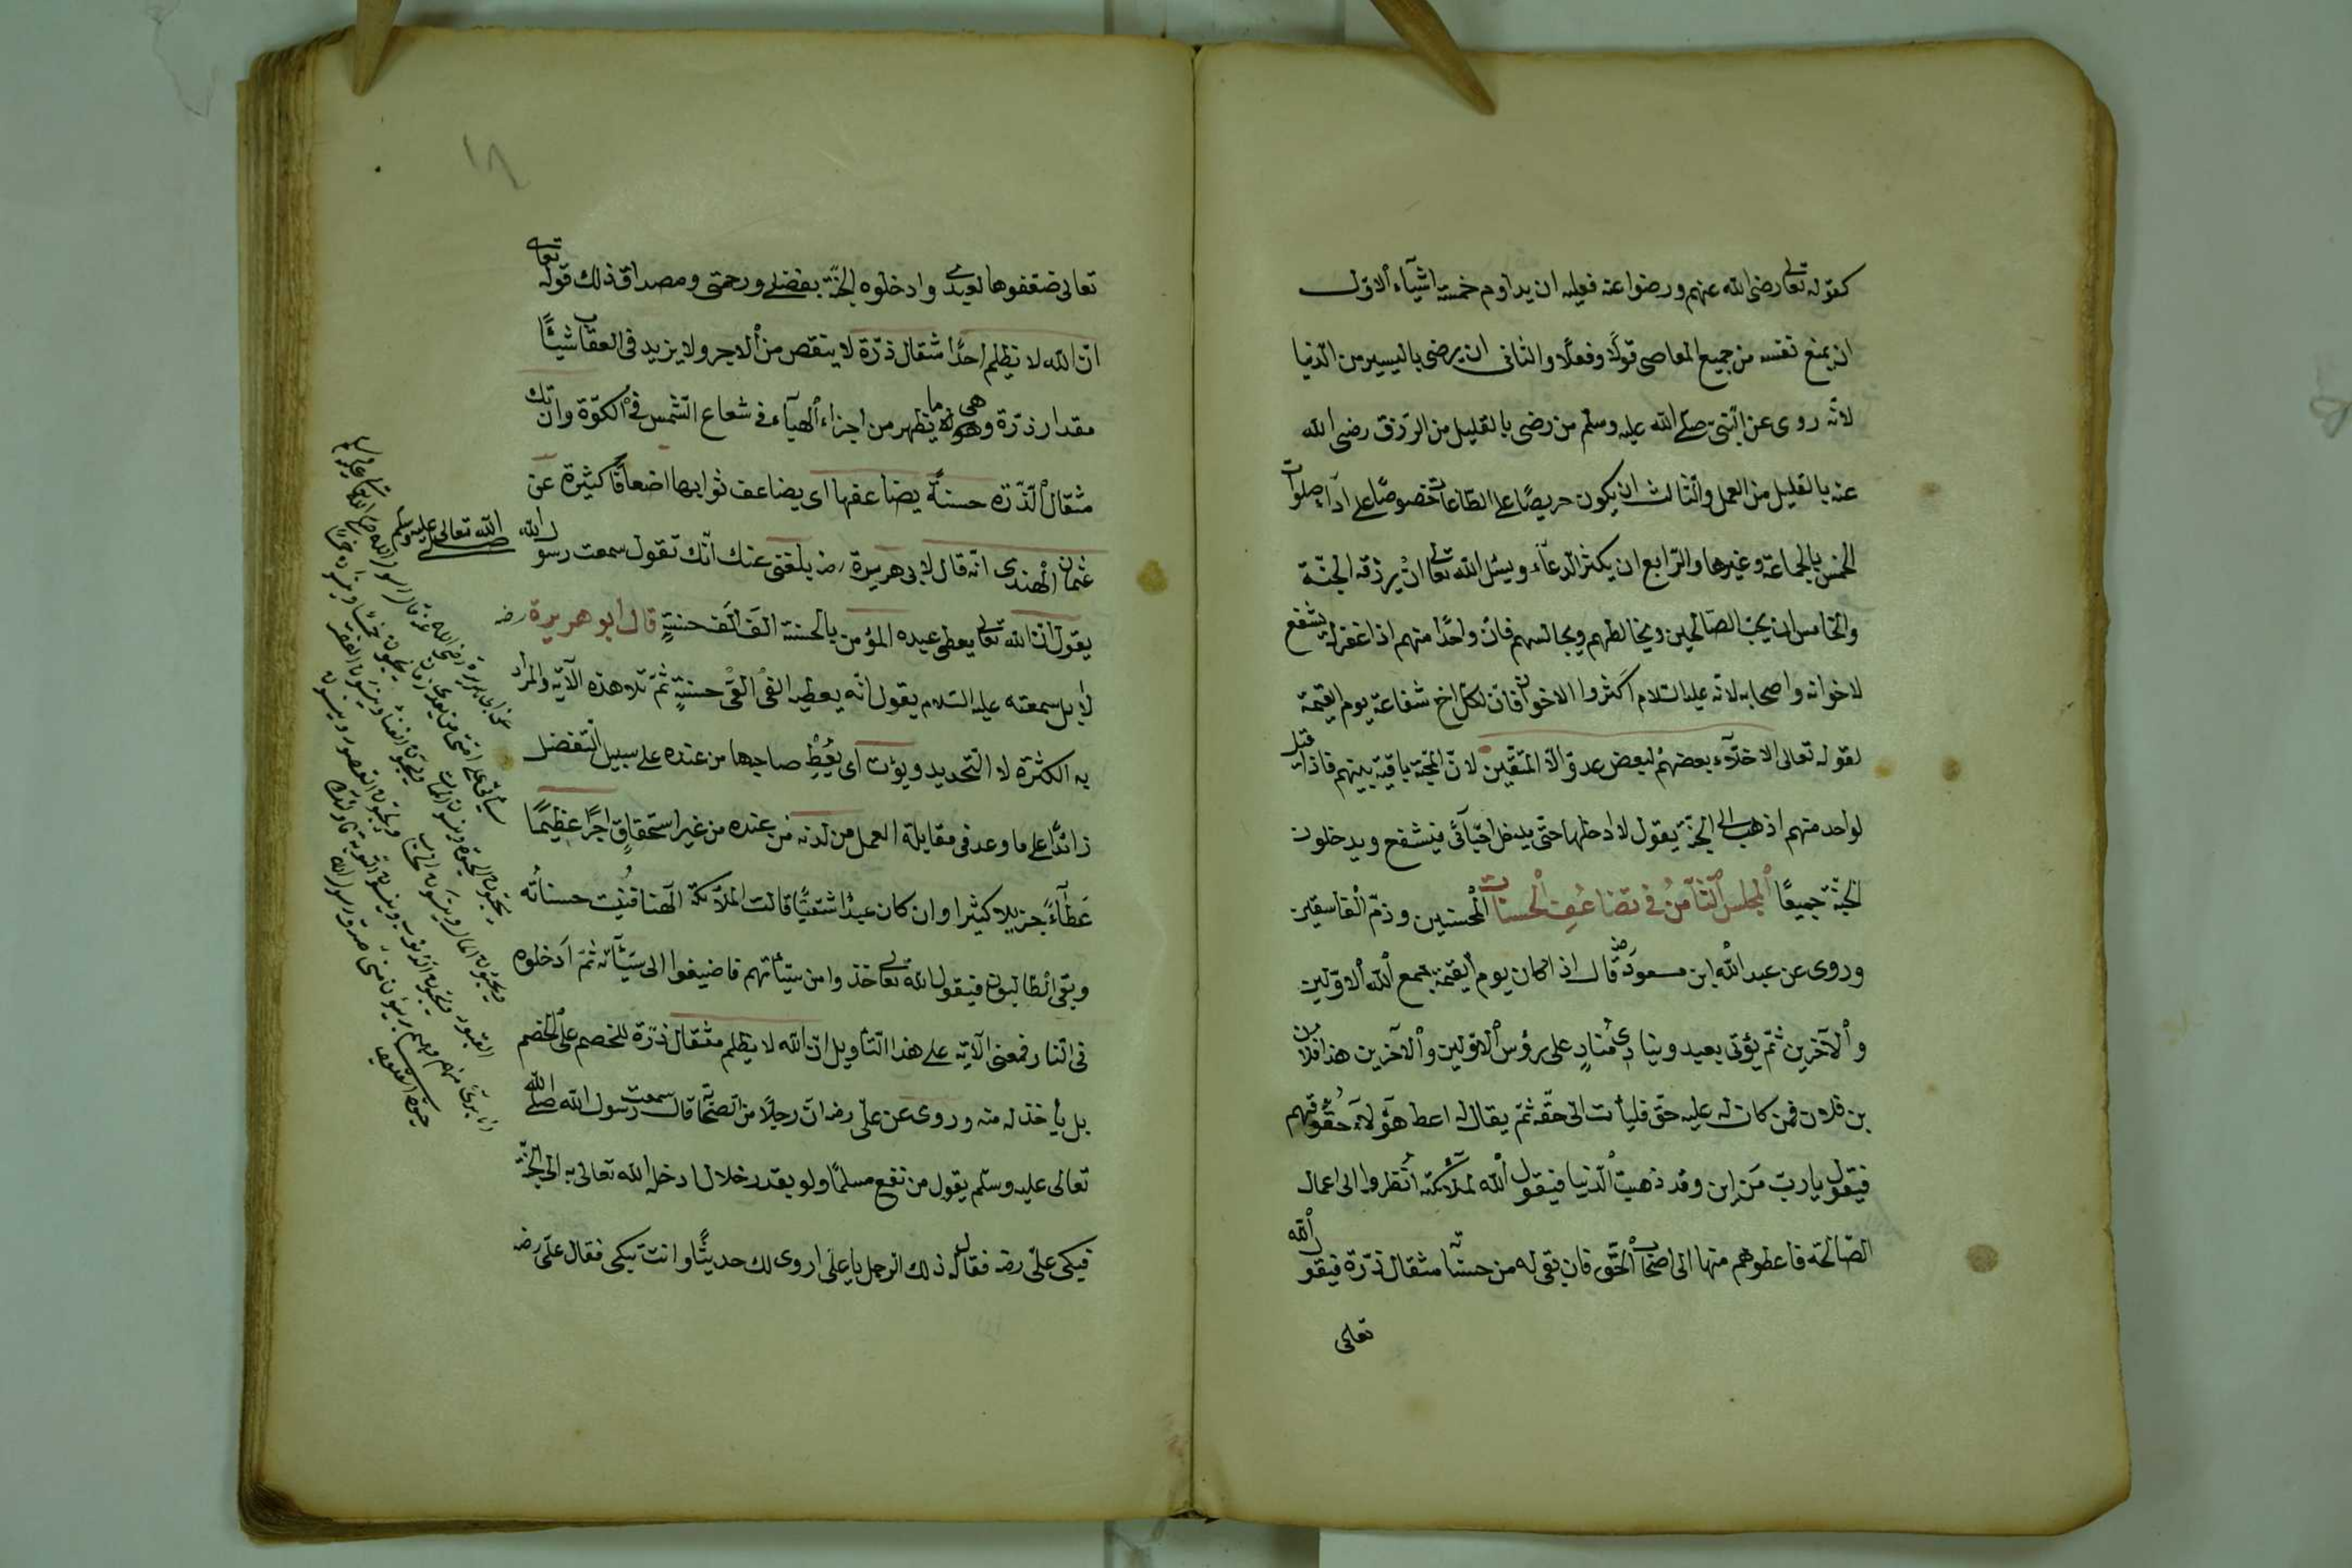 كقوله تعالى رضى الله عنهم ورضوا عنه فعليه ان يداوم خمسة اشيآء الاوّل
ان يمنع نفسه من جميع المعاصى قولًا وفعلًا والثانى ان يرضى باليسير من الدّنيا
لانّه روى عن النّبىّ صلّى الله عليه وسلّم من رضى بالقليل من الرّزق رضى الله
عنه بالقليل من العمل والثّالث ان يكون حريصًا على الطّاعات خصوصًا على ادآء صلوات
الخمس بالجماعة وغيرها والرّابع ان يكثر الدّعآء ويسئل الله تعالى ان يرزقه الجنّة
والخامس ان يحبّ الصّالحين ويخالطهم ويجالسهم فانّ واحدًا منهم اذا غفر له يشفع
لاخوانه واصحابه لانّه عليه السّلام اكثروا الاخوان فانّ لكلّ اخ شفاعة يوم القيمة
لقوله تعالى الاخلّآء بعضهم لبعض عدوّ الّا المتّقين لانّ المحبّة باقية بينهم فاذا قيل
لواحد منهم اذهب الى الجنّة يقول لا ادخلها حتّى يدخل احبّآئى فيشفع ويدخلون
الجنّة جميعًا المجلس الثّامن فى تضاعف الحسنات المحسنين وذمّ الفاسقين
وروى عن عبد الله ابن مسعود رضه قال اذا كان يوم القيمة يجمع الله الاوّلين
والآخرين ثمّ يؤتى بعبد وينادى منادٍ على رؤس الاوّلين والآخرين هذا فلان
بن فلان فمن كان له عليه حقّ فليأت الى حقّه ثمّ يقال له اعط هؤلآء حقوقهم
فيقول يا ربّ من اين وقد ذهبت الدّنيا فيقول الله لملآئكته انظروا الى اعمال
الصّالحة فاعطوهم منها الى اصحاب الحقّ فان بقى له من حسنات مثقال ذرّة فيقول الله
تعالى
١٨
تعالى ضعّفوها لعبدى وادخلوه الجنّة بفضلى ورحمتى ومصداق ذلك قوله تعالى
انّ الله لا يظلم احدًا مثقال ذرّة لا ينقص من الاجر ولا يزيد فى العقاب شيئًا
مقدار ذرّة وهى ما يظهر من اجزاء الهبآء فى شعاع الشّمس فى الكوّة وان تك
مثقال الذّرّة حسنةً يضاعفها اى يضاعف ثوابها اضعافًا كثيرة عن
عثمان الهندى انّه قال لابى هريرة رضه بلغنى عنك انّك تقول سمعت رسول الله صلّى الله تعالى عليه وسلّم
يقول انّ الله تعالى يعطى عبده المؤمن بالحسنة الف الف حسنةٍ قال ابو هريرة رضه
لا بل سمعته عليه السّلام يقول انّه يعطيه الفى الفى حسنةٍ ثمّ تلا هذه الآية والمراد
به الكثرة لا التّحديد ويؤت اى يُعطِ صاحبها من عنده على سبيل التّفضل
زائدًا على ما وعد فى مقابلة العمل من لدنه من عنده من غير استحقاقٍ اجرًا عظيمًا
عَطآءً جزيلا كثيرا وان كان عبدًا شقيًّا قالت الملآئكة الٰهنا فنيت حسناته
وبقى الطّالبون فيقول الله تعالى خذوا من سيّئاتهم فاضيفوا الى سيّآته ثمّ ادخلوه
فى النّار فمعنى الآية على هذا التّأويل انّ الله لا يظلم مثقال ذرّة للخصم على الخصم
بل يأخذ له منه وروى عن علىّ رضه انّ رجلًا من الصّحابة قال سمعت رسول الله صلّى الله
تعالى عليه وسلّم يقول من نفع مسلمًا ولو بقدر خلال ادخله الله تعالى به الى الجنّة
فبكى علىّ رضه فقال له ذلك الرّجل يا علىّ اروى لك حديثًا وانت تبكى فقال علىّ رضه